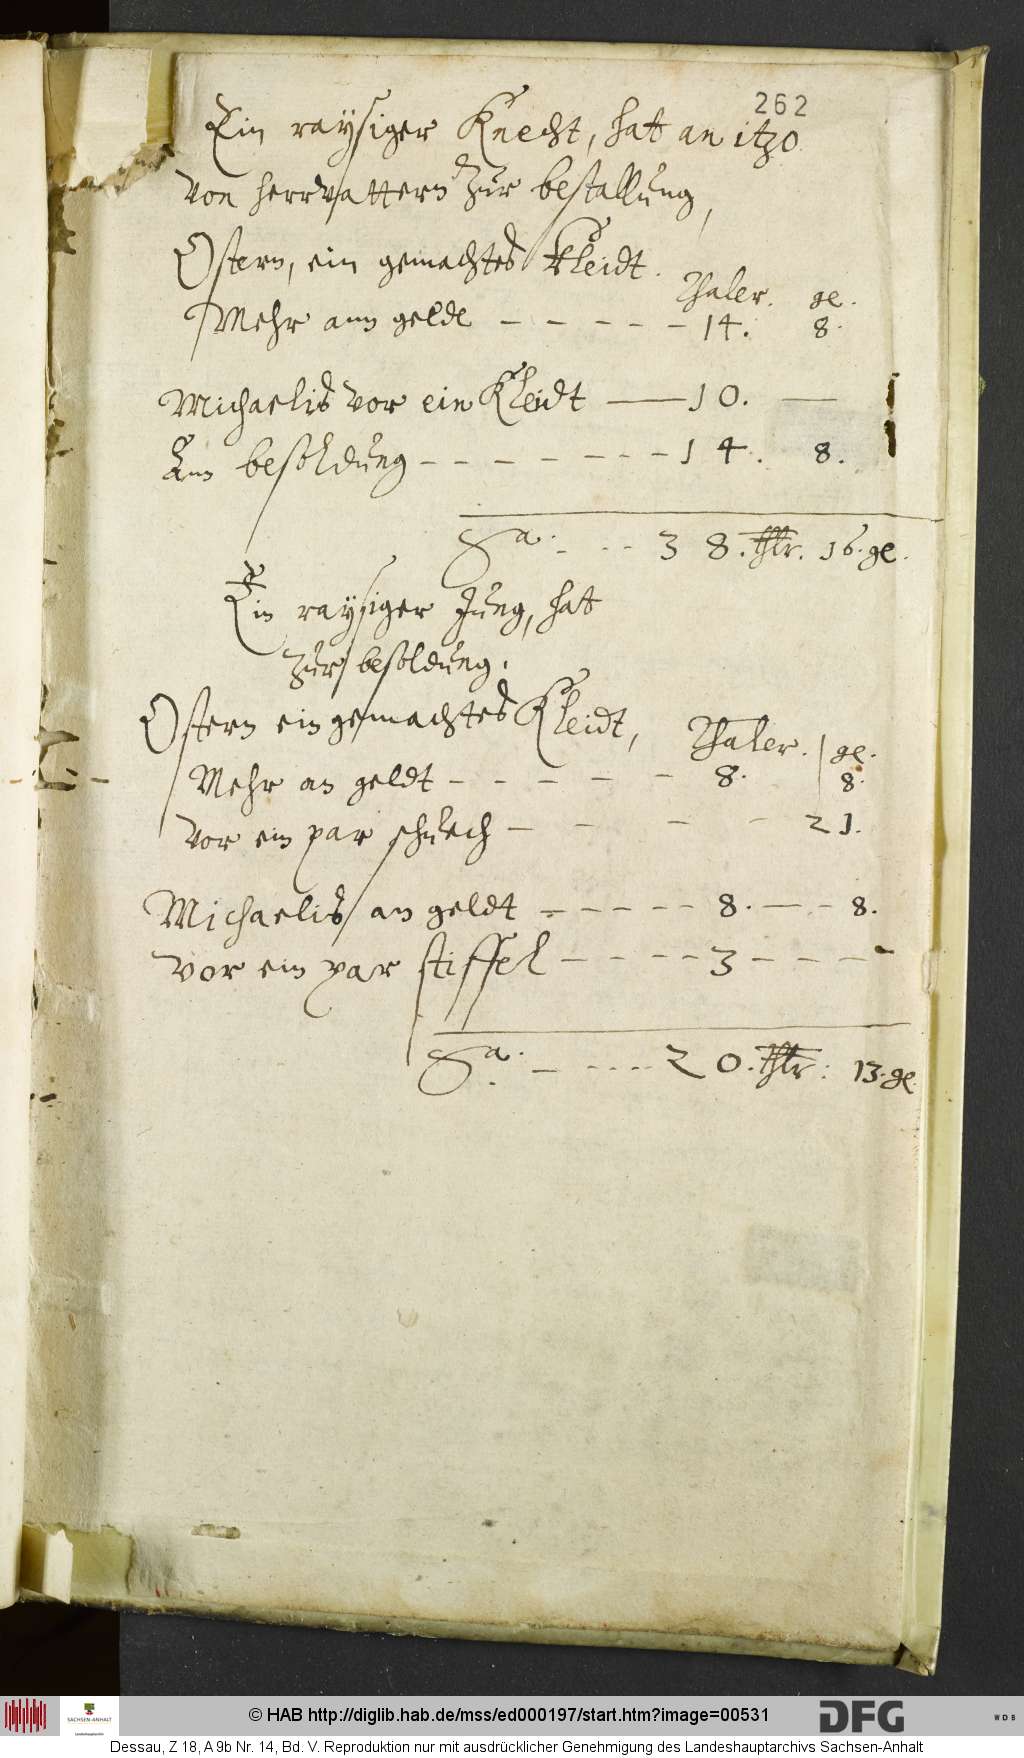 262
Ein raysiger Knecht, hat an itzo
von herrvattern zur bestallung,
Ostern, ein gemachtes Kleidt.
Thaler. gl.
Mehr ann geldt - - - - - 14. 8.
Michaelis vor ein Kleidt — 10. —
Ann besoldung - - - - - - - 14. 8.
Sa. - - - - 38. thlr. 16. gl.
Ein raysiger Jung, hat
zur besoldung.
Ostern ein gemachtes Kleidt,
Thaler. gl.
Mehr an geldt - - - - - 8. 8.
vor ein par schuech - - - - 21.
Michaelis an geldt - - - - - 8. — - 8.
vor ein par stiffel - - - - - 3 - - - - -
Sa. - - - - - 20. thlr: 13. gl.
© HAB http://diglib.hab.de/mss/ed000197/start.htm?image=00531
SACHSEN-ANHALT
DFG
WDB
Dessau, Z 18, A 9b Nr. 14, Bd. V. Reproduktion nur mit ausdrücklicher Genehmigung des Landeshauptarchivs Sachsen-Anhalt